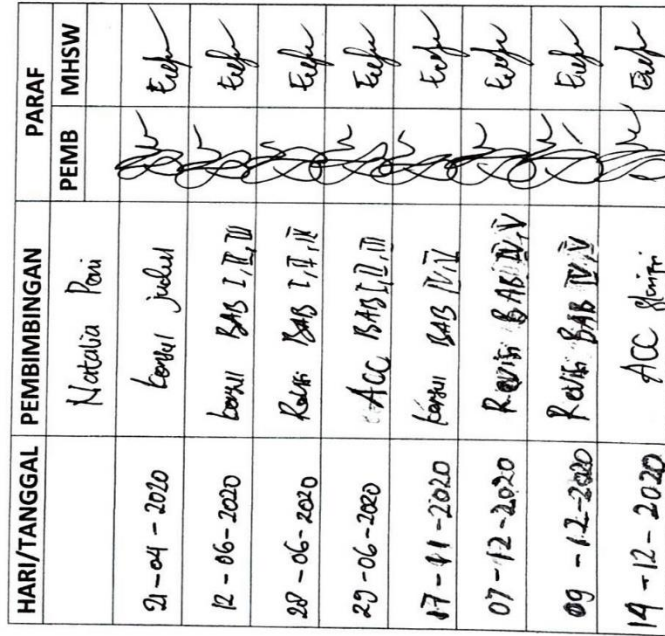 HARI/TANGGAL PEMBIMBINGAN PARAF
PEMB MHSW
Natalia
21-04-2020 konsul judul
12-06-2020 konsul BAB I, II, III
28-06-2020 Revisi BAB I, II, III
29-06-2020 ACC BAB I, II, III
17-11-2020 konsul BAB IV, V
07-12-2020 Revisi BAB IV, V
09-12-2020 Revisi BAB IV, V
14-12-2020 ACC